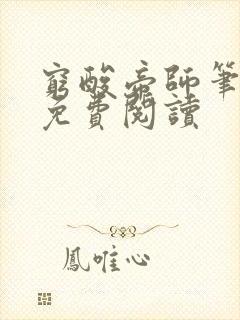 窮酸帝師筆
免費閱讀
鳳唯心